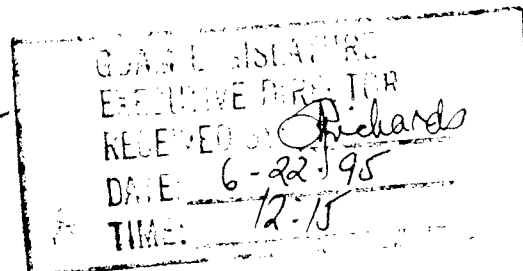 GUAM LEGISLATURE
EXECUTIVE DIRECTOR
RECEIVED BY Richards
DATE: 6-22-95
TIME: 12:15